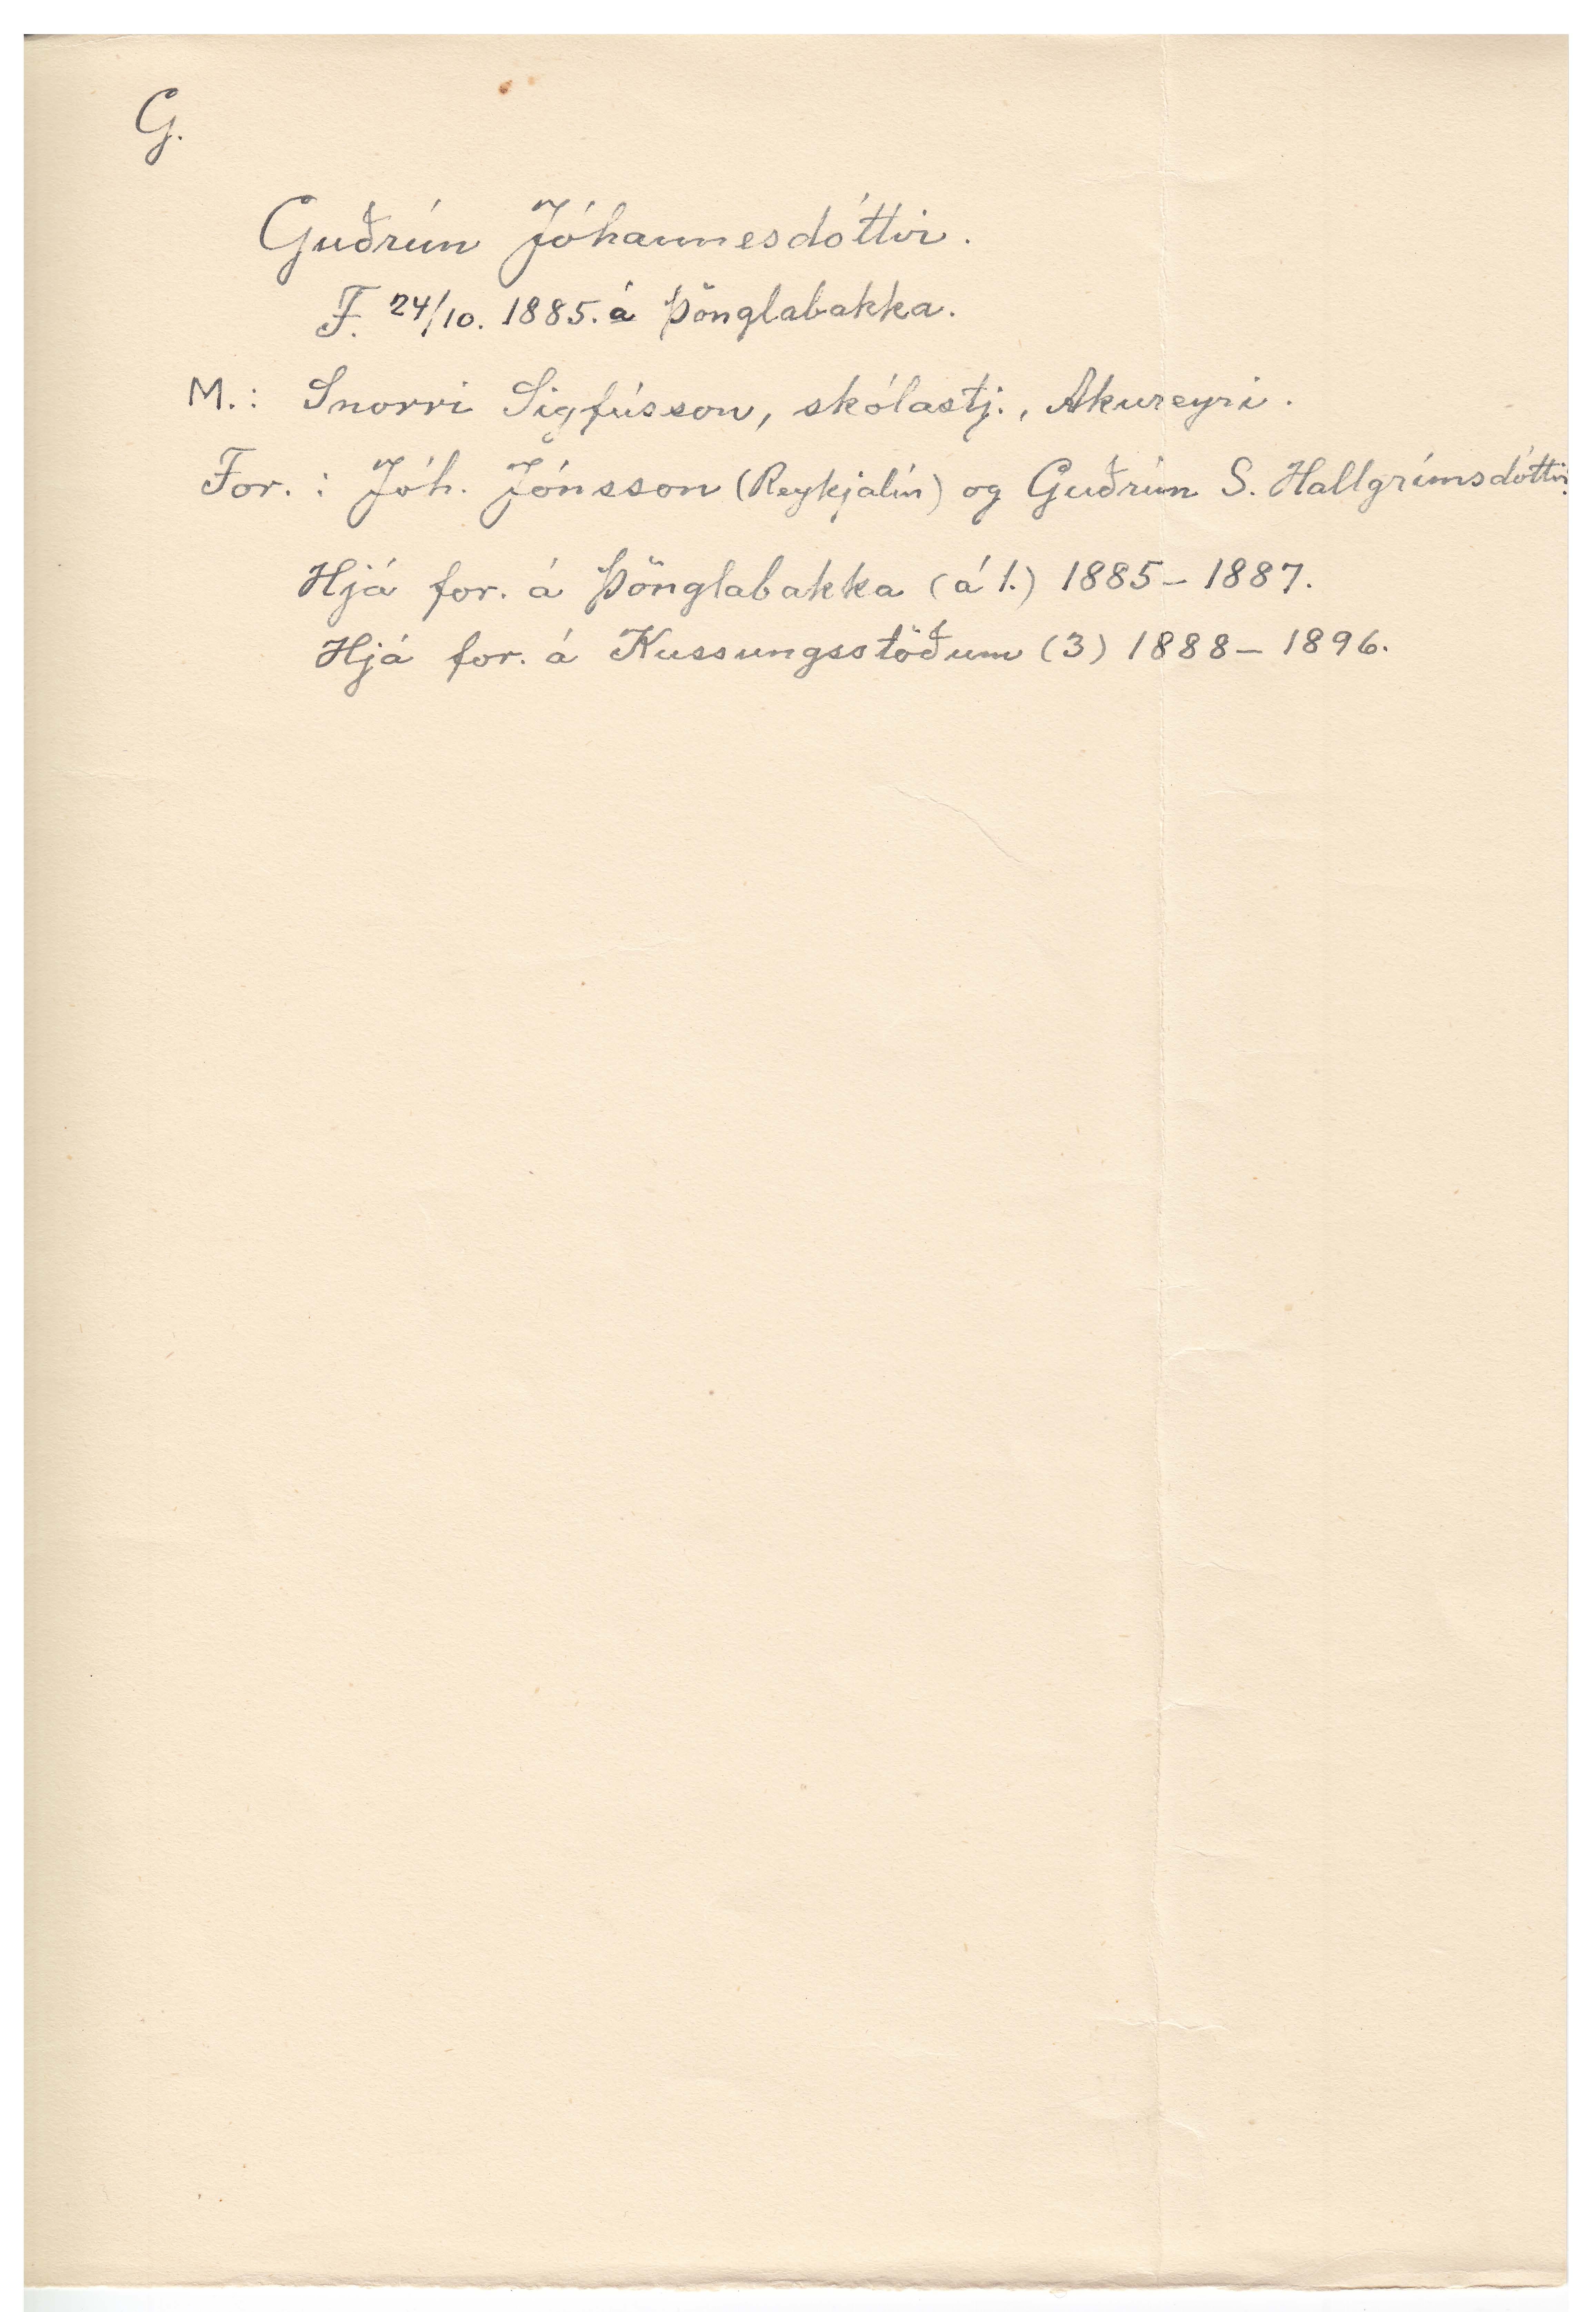 G.
Guðrún Jóhannesdóttir.
F. 24/10. 1885. á Þönglabakka.
M.: Snorri Sigfússon, skólastj., Akureyri.
For.: Jóh. Jónsson (Reykjalín) og Guðrún S. Hallgrímsdóttir.
Hjá for. á Þönglabakka (á 1.) 1885–1887.
Hjá for. á Kussungsstöðum (3) 1888–1896.